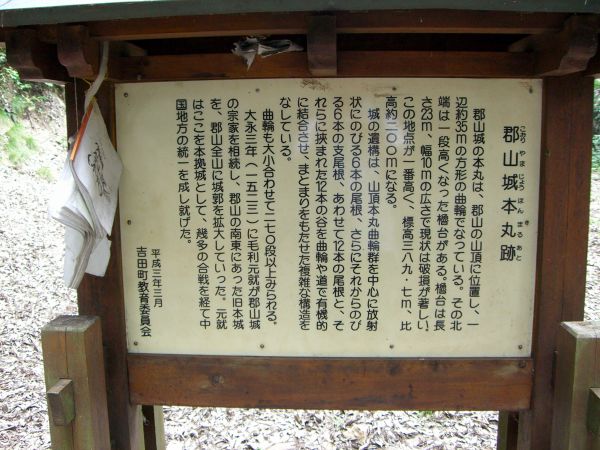 郡山城本丸跡
こおり やま じょう ほん まる あと
郡山城の本丸は、郡山の山頂に位置し、一
辺約35mの方形の曲輪でなっている。その北
端は一段高くなった櫓台がある。櫓台は長
さ23m、幅10mの広さで現状は破損が著しい。
この地点が一番高く、標高三八九・七m、比
高約二〇〇mになる。
城の遺構は、山頂本丸曲輪群を中心に放射
状にのびる6本の尾根、さらにそれからのび
る6本の支尾根、あわせて12本の尾根と、そ
れらに挟まれた12本の谷を曲輪や道で有機的
に結合させ、まとまりをもたせた複雑な構造を
なしている。
曲輪も大小合わせて二七〇段以上みられる。
大永三年(一五二三)に毛利元就が郡山城
の宗家を相続し、郡山の南東にあった旧本城
を、郡山全山に城郭を拡大していった。元就
はここを本拠城として、幾多の合戦を経て中
国地方の統一を成し就げた。
平成三年三月
吉田町教育委員会